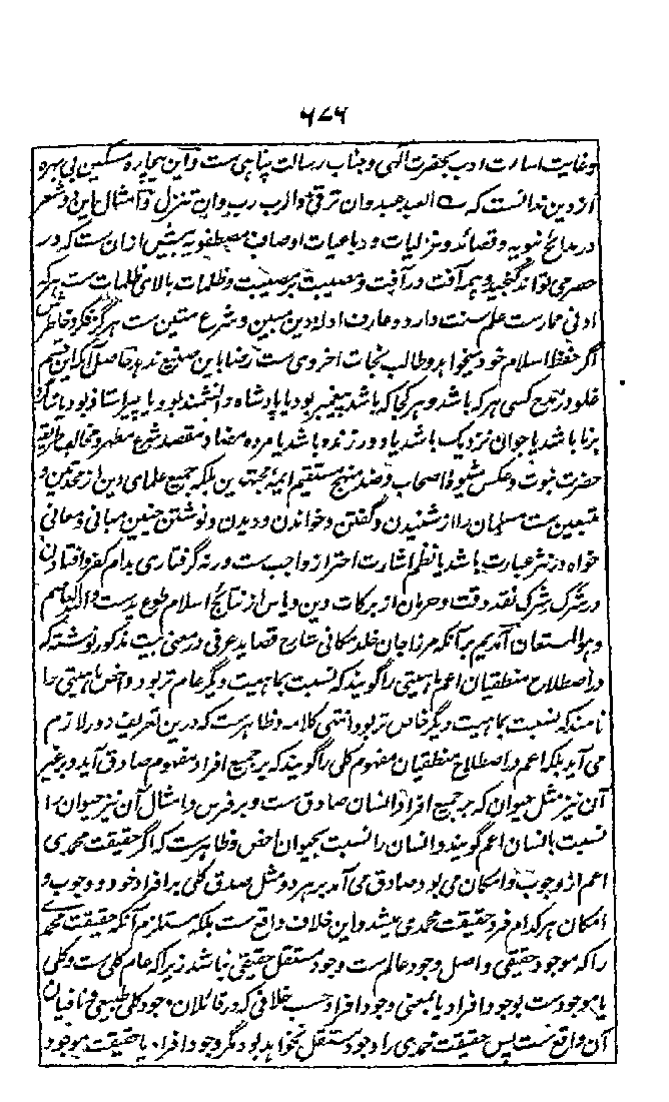 ۶۷۶
وغایت اسارت ادب بحضرت الهی وجناب رسالت پناهی ست واین بیچاره مسکین بی بهره
از دین ندانست که العبد عبد وان ترقی والرب رب وان تنزل وامثال این دو شعر
در مدائح نبویه وقصائد وغزلیات ورباعیات اوصاف مصطفویه بیش ازان ست که در
حصر می تواند گنجید وهمه آفت در آفت ومصیبت بر مصیبت وظلمات بالای ظلمات ست هرکه
ادنی ممارست علم سنت دارد وعارف ادله دین مبین وشرع متین ست هرگز فکر وخاطرش
اگر حفظ اسلام خود میخواهد وطالب نجات اخروی ست رضا باین صنیع ندهد حاصل آنکه این قسم
غلو در مدح کسی هرکه باشد وهر کجا که باشد پیغمبر بود یا پادشاه دانشمند بود یا پیر استاذ بود یا شاگرد
برنا باشد یا جوان نزدیک باشد یا دور زنده باشد یا مرده مضاد مقصد شرع مطهر ومخالف طریقه
حضرت نبوت وعکس شیوه اصحاب وضد منهج مستقیم ائمه مجتهدین بلکه جمیع علمای دین از محدثین و
متبعین ست مسلمان را از شنیدن وگفتن وخواندن ودیدن ونوشتن چنین مبانی ومعانی
خواه در نثر عبارت باشد یا نظم اشارت احتراز واجب ست ورنه گرفتاری بدام کفر وافتادن
در شرک شرک نقد وقت وحرمان از برکات دین ویاس از نتائج اسلام طوع ید ست والله اعلم
وهو المستعان آمدیم بر آنکه مرزا جان خلد مکانی شارح قصاید عرفی در معنی بیت مذکور نوشته که
در اصطلاح منطقیان اعم ماهیتی را گویند که نسبت بماهیت دیگر عام تر بود واخص ماهیتی را
نامند که نسبت بماهیت دیگر خاص تر بود انتهی کلامه وظاهر ست که درین تعریف دور لازم
می آید بلکه اعم در اصطلاح منطقیان مفهوم کلی را گویند که بر جمیع افراد مفهوم صادق آید وبر غیر
آن نیز مثل حیوان که بر جمیع افراد انسان صادق ست وبر فرس وامثال آن نیز حیوان را
نسبت بانسان اعم گویند وانسان را نسبت بحیوان اخص وظاهر ست که اگر حقیقت محمدی
اعم از وجوب وامکان می بود صادق می آمد بر هر دو مثل صدق کلی بر افراد خود ووجوب و
امکان هر کدام فرد حقیقت محمدی میشد واین خلاف واقع ست بلکه مستلزم آنکه حقیقت محمدی
را که موجود حقیقی واصل وجود عالم ست وجود مستقل حقیقی نباشد زیراکه عام کلی ست وکلی
یا موجود ست بوجود افراد یا بمعنی وجود افراد حسب خلافی که در قائلان وجود کلی طبیعی ونافیان
آن واقع ست پس حقیقت محمدی را وجود مستقل نخواهد بود مگر وجود افراد یا حقیقت موجود